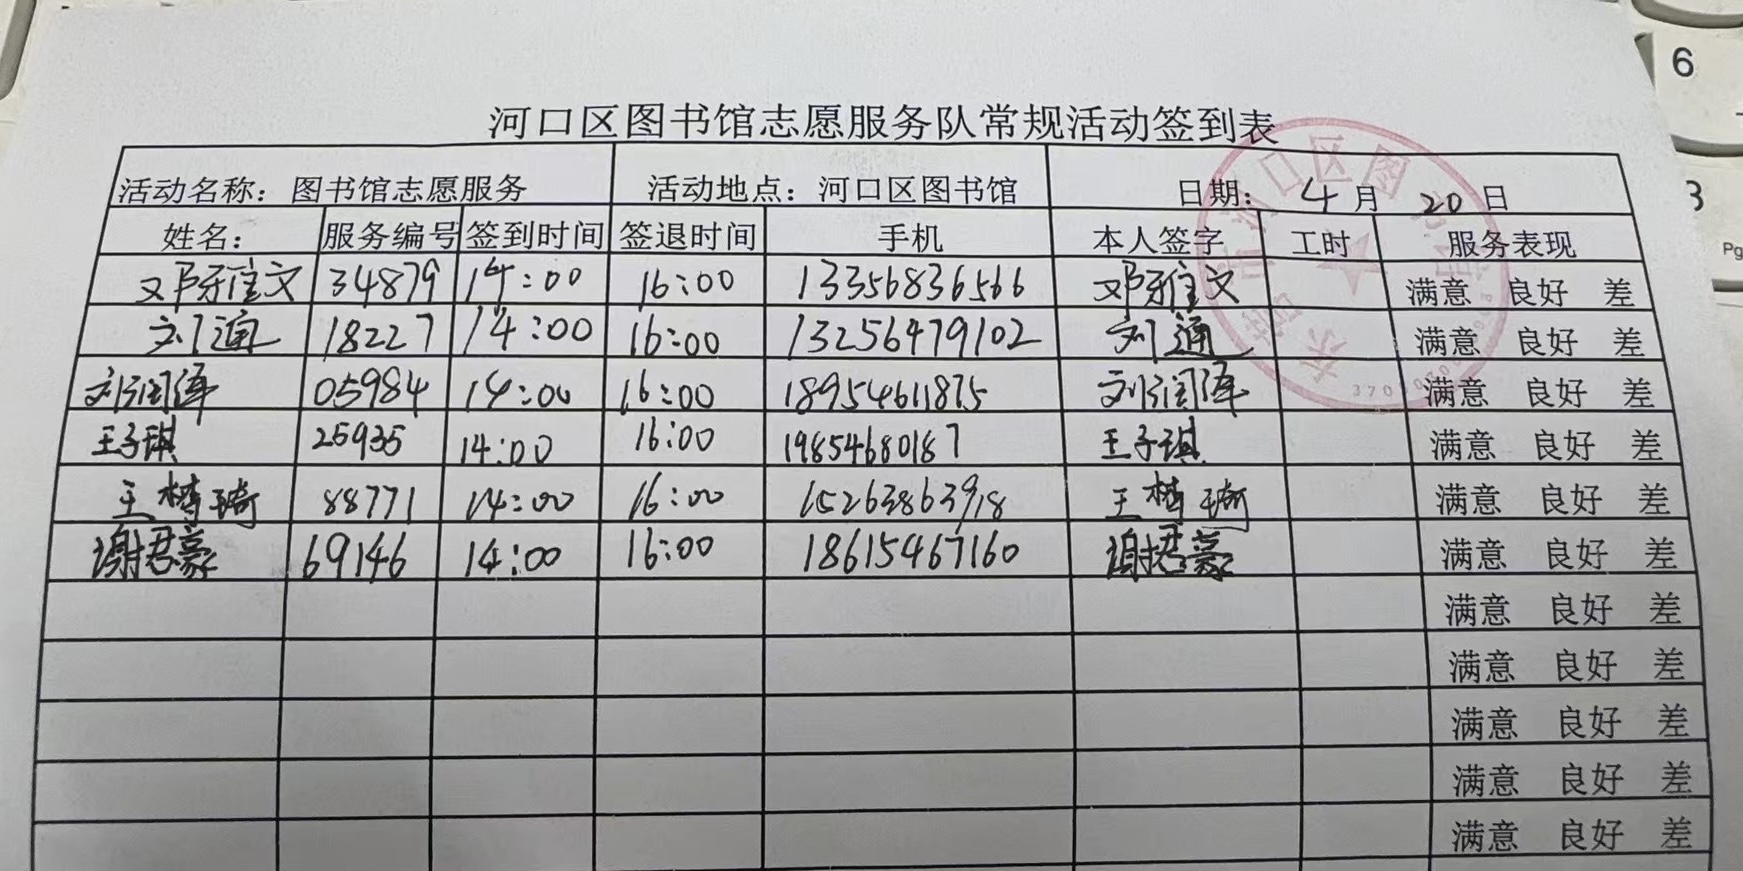 河口区图书馆志愿服务队常规活动签到表
活动名称：图书馆志愿服务 活动地点：河口区图书馆 日期：4月20日
姓名： 服务编号 签到时间 签退时间 手机 本人签字 工时 服务表现
邓雅文 34879 14:00 16:00 13356836566 邓雅文 满意 良好 差
刘通 18227 14:00 16:00 13256479102 刘通 满意 良好 差
刘润泽 05984 14:00 16:00 18954611875 刘润泽 满意 良好 差
王子琪 25935 14:00 16:00 19854680187 王子琪 满意 良好 差
王梓琦 88771 14:00 16:00 15263863918 王梓琦 满意 良好 差
谢君豪 69146 14:00 16:00 18615467160 谢君豪 满意 良好 差
满意 良好 差
满意 良好 差
满意 良好 差
满意 良好 差
满意 良好 差
6
3
Pg